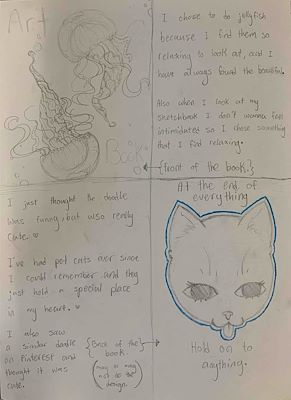 Art
Book
I chose to do jellyfish
because I find them so
relaxing to look at, and I
have always found the beautiful.
Also when I look at my
sketchbook I don't wanna feel
intimidated so I chose something
that I find relaxing.
{front of the book.}
I just thought the doodle
was funny, but also really
cute.
I've had pet cats ever since
I could remember and they
just hold a special place
in my heart.
I also saw
a similar doodle
on Pinterest and
thought it was
cute.
{Back of the}
book.
(may or may
not be the
design.)
At the end of
everything
Hold on to
anything.